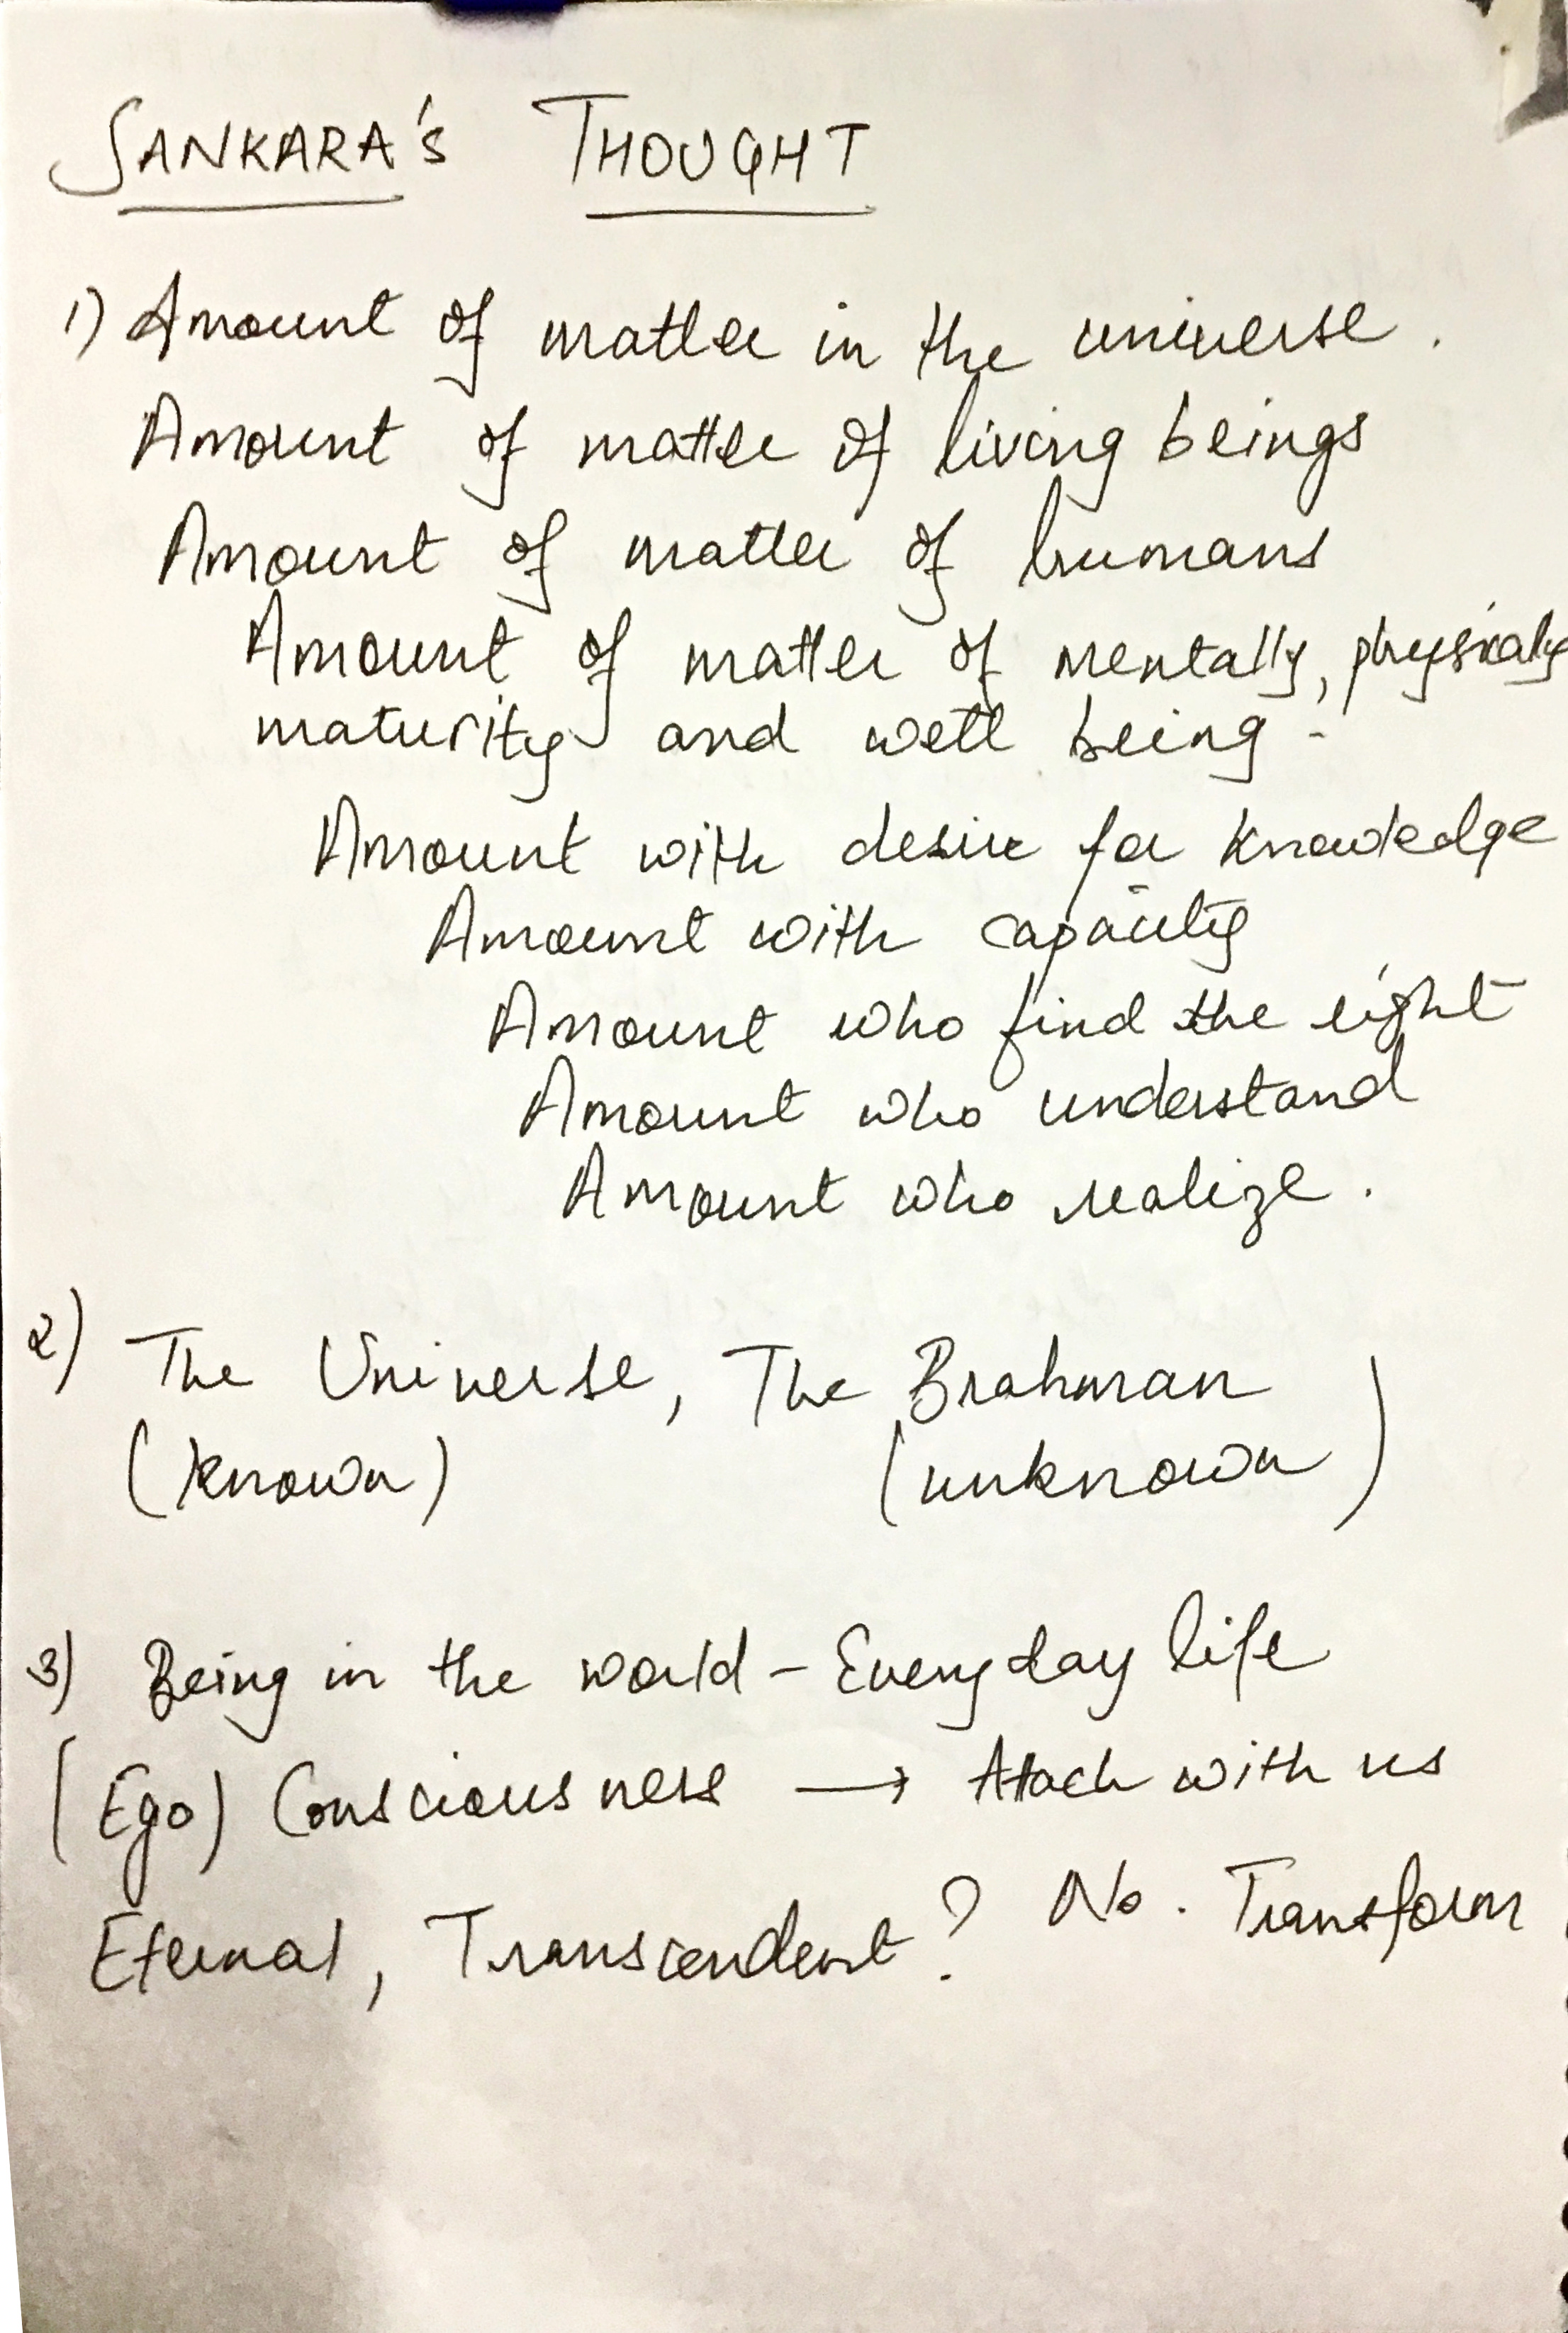 SANKARA'S THOUGHT
1) Amount of matter in the universe.
Amount of matter of living beings
Amount of matter of humans
Amount of matter of mentally, physicaly
maturity and well being.
Amount with desire for knowledge
Amount with capacity
Amount who find the right
Amount who understand
Amount who realize.
2) The Universe, The Brahman
(known) (unknown)
3) Being in the world - Everyday life
(Ego) Consciousness → Attach with us
Eternal, Transcendent? No. Transform